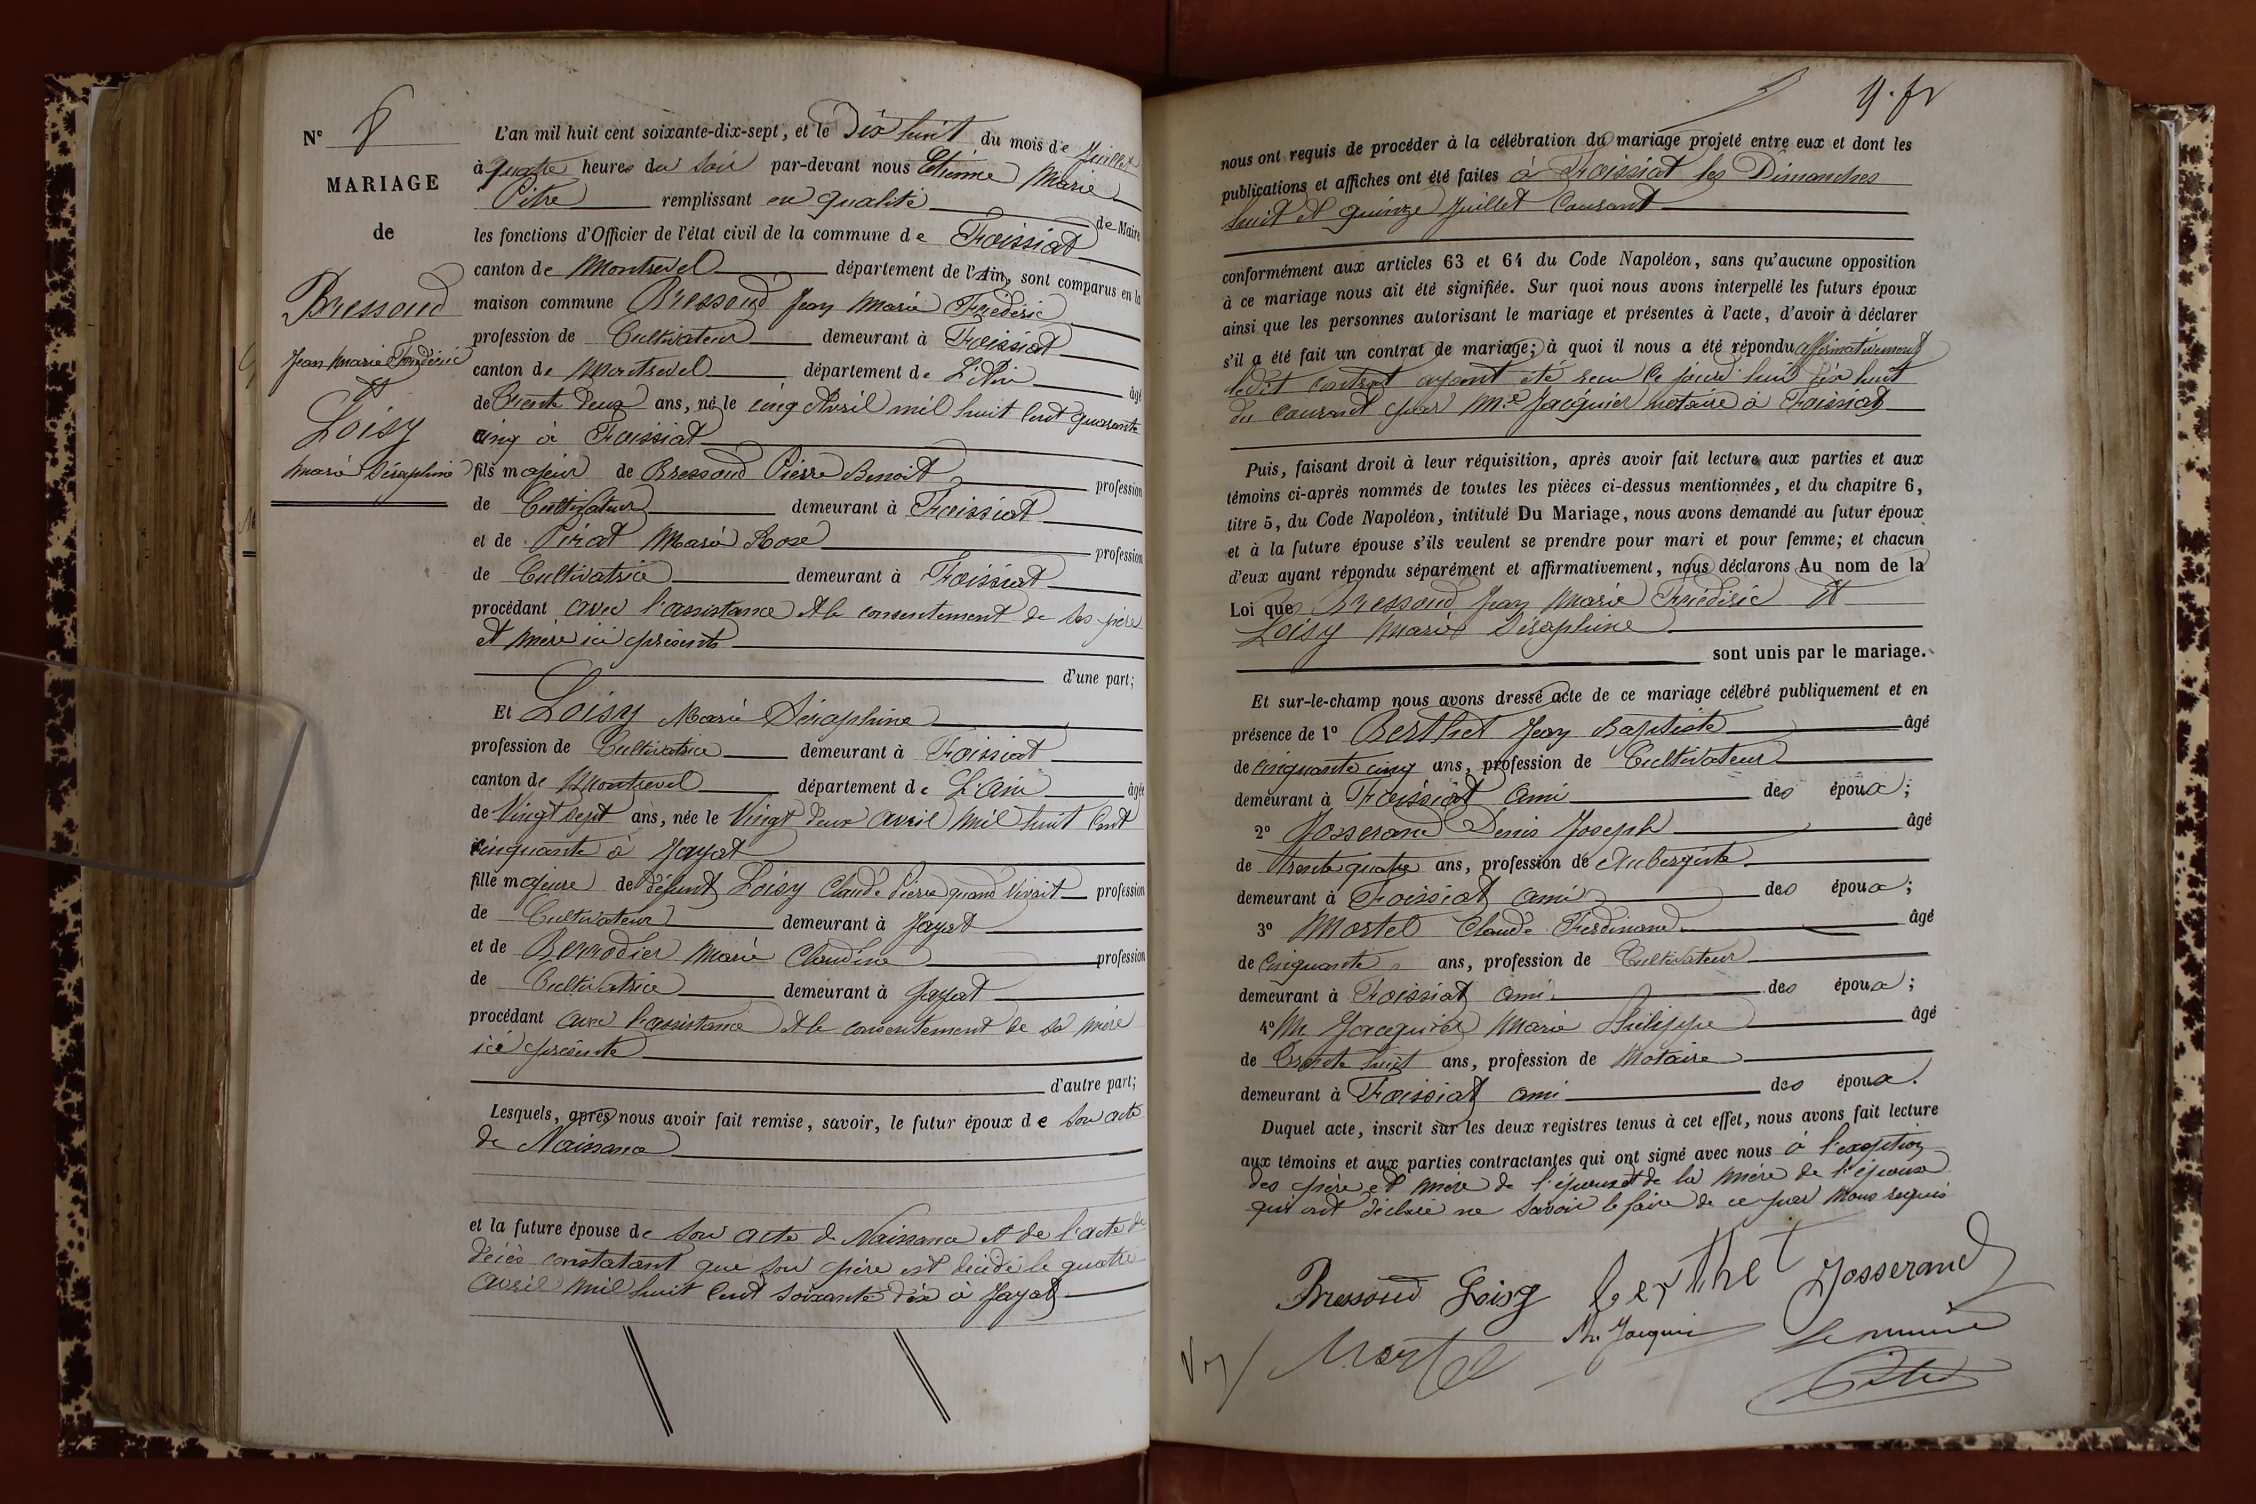 N° 8
MARIAGE
de
Bressoud
Jean Marie Frédéric
et
Loisy
Marie Séraphine
L'an mil huit cent soixante-dix-sept, et le Dix huit du mois de Juillet
à quatre heures du soir par-devant nous Etienne Marie
Pitre remplissant en qualité de Maire
les fonctions d'Officier de l'état civil de la commune de Foissiat
canton de Montrevel département de l'Ain, sont comparus en la
maison commune Bressoud Jean Marie Frédéric
profession de Cultivateur demeurant à Foissiat
canton de Montrevel département de L'Ain âgé
de Trente deux ans, né le cinq Avril mil huit cent quarante
cinq à Foissiat
fils majeur de Bressoud Pierre Benoit profession
de Cultivateur demeurant à Foissiat
et de Pirat Marie Rose profession
de Cultivatrice demeurant à Foissiat
procédant avec l'assistance et le consentement de ses père
et mère ici présents
d'une part;
Et Loisy Marie Séraphine
profession de Cultivatrice demeurant à Foissiat
canton de Montrevel département de L'Ain âgée
de Vingt sept ans, née le Vingt deux avril mil huit cent
cinquante à Jayat
fille majeure de défunt Loisy Claude Pierre quand vivait profession
de Cultivateur demeurant à Jayat
et de Berrodier Marie Claudine profession
de Cultivatrice demeurant à Jayat
procédant avec l'assistance et le consentement de sa mère
ici présente
d'autre part;
Lesquels, après nous avoir fait remise, savoir, le futur époux de son acte
de Naissance
et la future épouse de son acte de Naissance et de l'acte de
décès constatant que son père est décédé le quatre
avril mil huit cent soixante dix à Jayat
nous ont requis de procéder à la célébration du mariage projeté entre eux et dont les
publications et affiches ont été faites à Foissiat les Dimanches
huit et quinze Juillet Courant
conformément aux articles 63 et 64 du Code Napoléon, sans qu'aucune opposition
à ce mariage nous ait été signifiée. Sur quoi nous avons interpellé les futurs époux
ainsi que les personnes autorisant le mariage et présentes à l'acte, d'avoir à déclarer
s'il a été fait un contrat de mariage; à quoi il nous a été répondu affirmativement
ledit contrat ayant été reçu ce jourd'hui dix huit
du courant par M.e Jacquier notaire à Foissiat
Puis, faisant droit à leur réquisition, après avoir fait lecture aux parties et aux
témoins ci-après nommés de toutes les pièces ci-dessus mentionnées, et du chapitre 6,
titre 5, du Code Napoléon, intitulé Du Mariage, nous avons demandé au futur époux
et à la future épouse s'ils veulent se prendre pour mari et pour femme; et chacun
d'eux ayant répondu séparément et affirmativement, nous déclarons Au nom de la
Loi que Bressoud Jean Marie Frédéric et
Loisy Marie Séraphine
sont unis par le mariage.
Et sur-le-champ nous avons dressé acte de ce mariage célébré publiquement et en
présence de 1° Berthet Jean Baptiste âgé
de cinquante cinq ans, profession de Cultivateur
demeurant à Foissiat ami des époux;
2° Josserand Denis Joseph âgé
de trente quatre ans, profession de Aubergiste
demeurant à Foissiat ami des époux;
3° Mortel Claude Ferdinand âgé
de Cinquante ans, profession de Cultivateur
demeurant à Foissiat ami des époux;
4° M. Jacquier Marie Philippe âgé
de Trente huit ans, profession de Notaire
demeurant à Foissiat ami des époux.
Duquel acte, inscrit sur les deux registres tenus à cet effet, nous avons fait lecture
aux témoins et aux parties contractantes qui ont signé avec nous à l'exception
des père et mère de l'époux et de la mère de l'épouse
qui ont déclaré ne savoir le faire de ce par nous requis
Bressoud Loisy berthet Josserand
Mortel Ph. Jacquier Le maire
Pitre